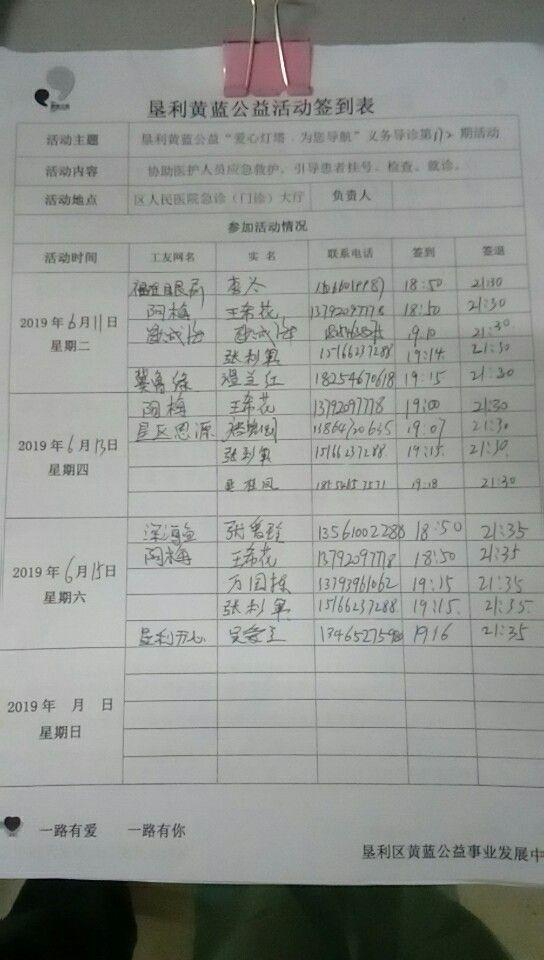 垦利黄蓝公益活动签到表
活动主题 垦利黄蓝公益“爱心灯塔﹒为您导航”义务导诊第172期活动
活动内容 协助医护人员应急救护、引导患者挂号、检查、就诊。
活动地点 区人民医院急诊（门诊）大厅 负责人
参加活动情况
活动时间 工友网名 实名 联系电话 签到 签退
2019年6月11日
星期二
18:50 21:30
阿梅 王希花 13792097778 18:50 21:30
19:10 21:30
张利军 15166237288 19:14 21:30
冀鲁缘 兰红 18254670618 19:15 21:30
2019年6月13日
星期四
阿梅 王希花 13792097778 19:00 21:30
垦区思源 13864730635 19:07 21:30
张利军 15166237288 19:15 21:30
19:18 21:30
2019年6月15日
星期六
深海鱼 13561002288 18:50 21:35
阿梅 王希花 13792097778 18:50 21:35
万国栋 13793961062 19:15 21:35
张利军 15166237288 19:15 21:35
垦利开心 吴爱玉 19:16 21:35
2019年 月 日
星期日
一路有爱 一路有你
垦利区黄蓝公益事业发展中